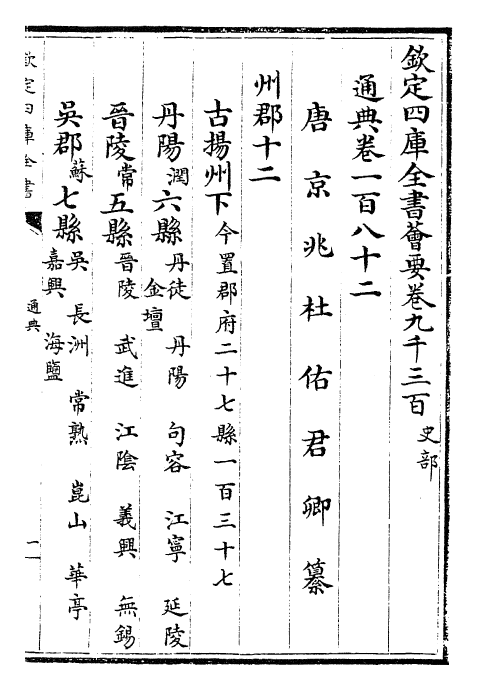 欽定四庫全書薈要卷九千三百 史部
通典卷一百八十二
唐京兆杜佑君卿纂
州郡十二
古揚州下 今置郡府二十七縣一百三十七
丹陽 潤 六縣 丹徒 丹陽 句容 江寧 延陵 金壇
晉陵 常 五縣 晉陵 武進 江陰 義興 無錫
吳郡 蘇 七縣 吳 長洲 常熟 崑山 華亭 嘉興 海鹽
欽定四庫全書
通典
一